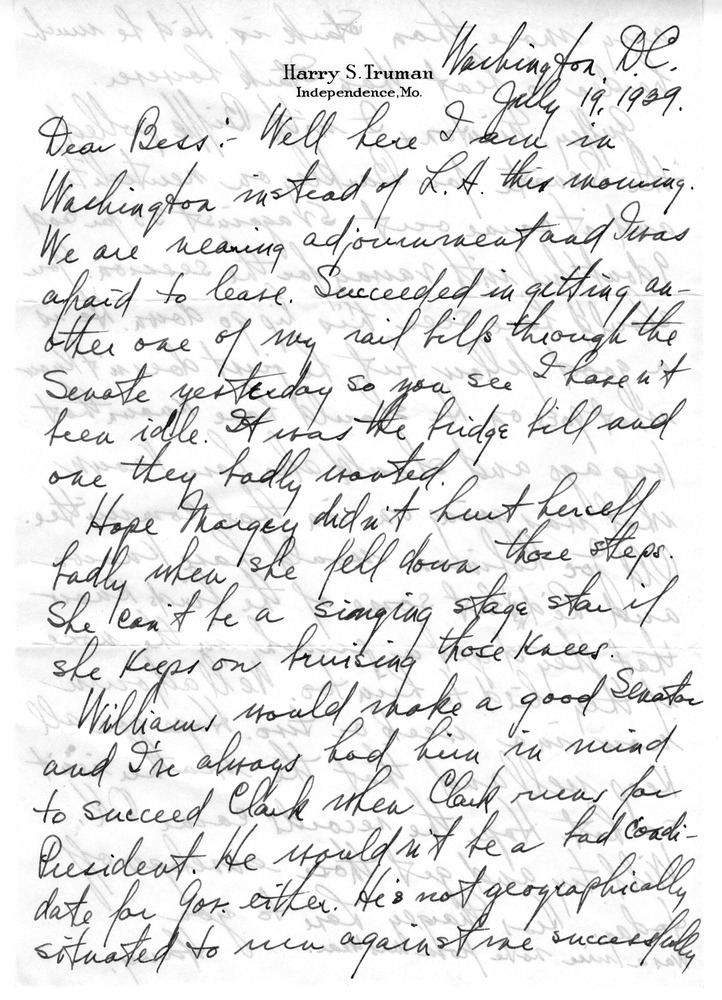 Harry S. Truman
Independence, Mo.
Washington, D.C.
July 19, 1939.
Dear Bess:- Well here I am in
Washington instead of L.A. this morning.
We are nearing adjournment and I was
afraid to leave. Succeeded in getting an-
other one of my rail bills through the
Senate yesterday so you see I haven't
been idle. It was the bridge bill and
one they badly wanted.
Hope Margey didn't hurt herself
badly when she fell down those steps.
She can't be a singing stage star if
she keeps on bruising those knees.
Williams would make a good Senator
and I've always had him in mind
to succeed Clark when Clark runs for
President. He wouldn't be a bad candi-
date for Gov. either. He's not geographically
situated to run against me successfully